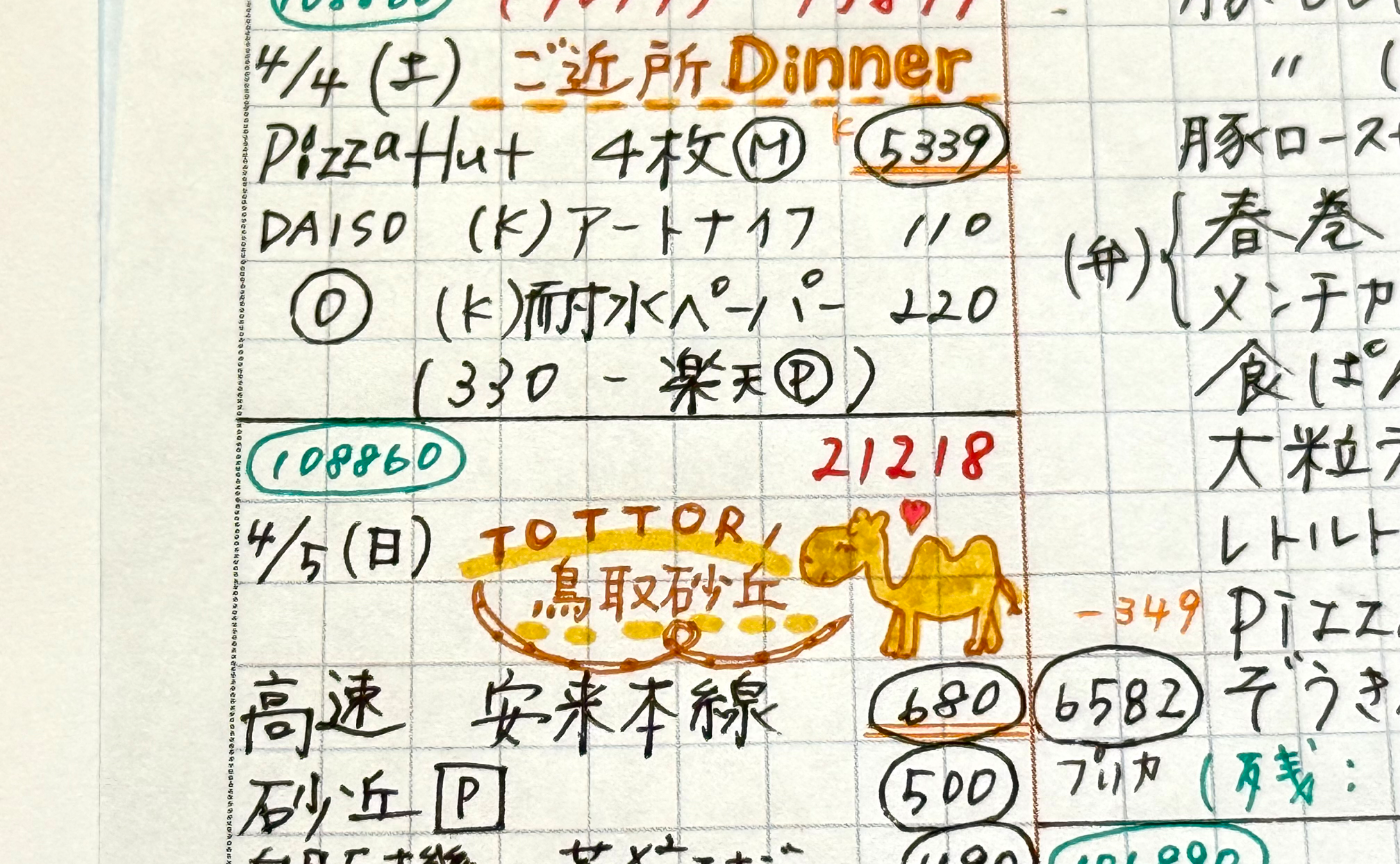 108860
4/4 (土) ご近所 Dinner
PizzaHut 4枚 Ⓜ K 5339
DAISO (K) アートナイフ 110
Ⓞ (K) 耐水ペーパー 220
(330 - 楽天Ⓟ)
108860 21218
4/5 (日) TOTTORI
鳥取砂丘
高速 安来本線 680
砂丘 P 500
〃 (
豚ロース
(弁) { 春巻
メンチカ
食ぱん
大粒
レトルト
-349 Pizz
6582 ぞうき
プリカ (残: